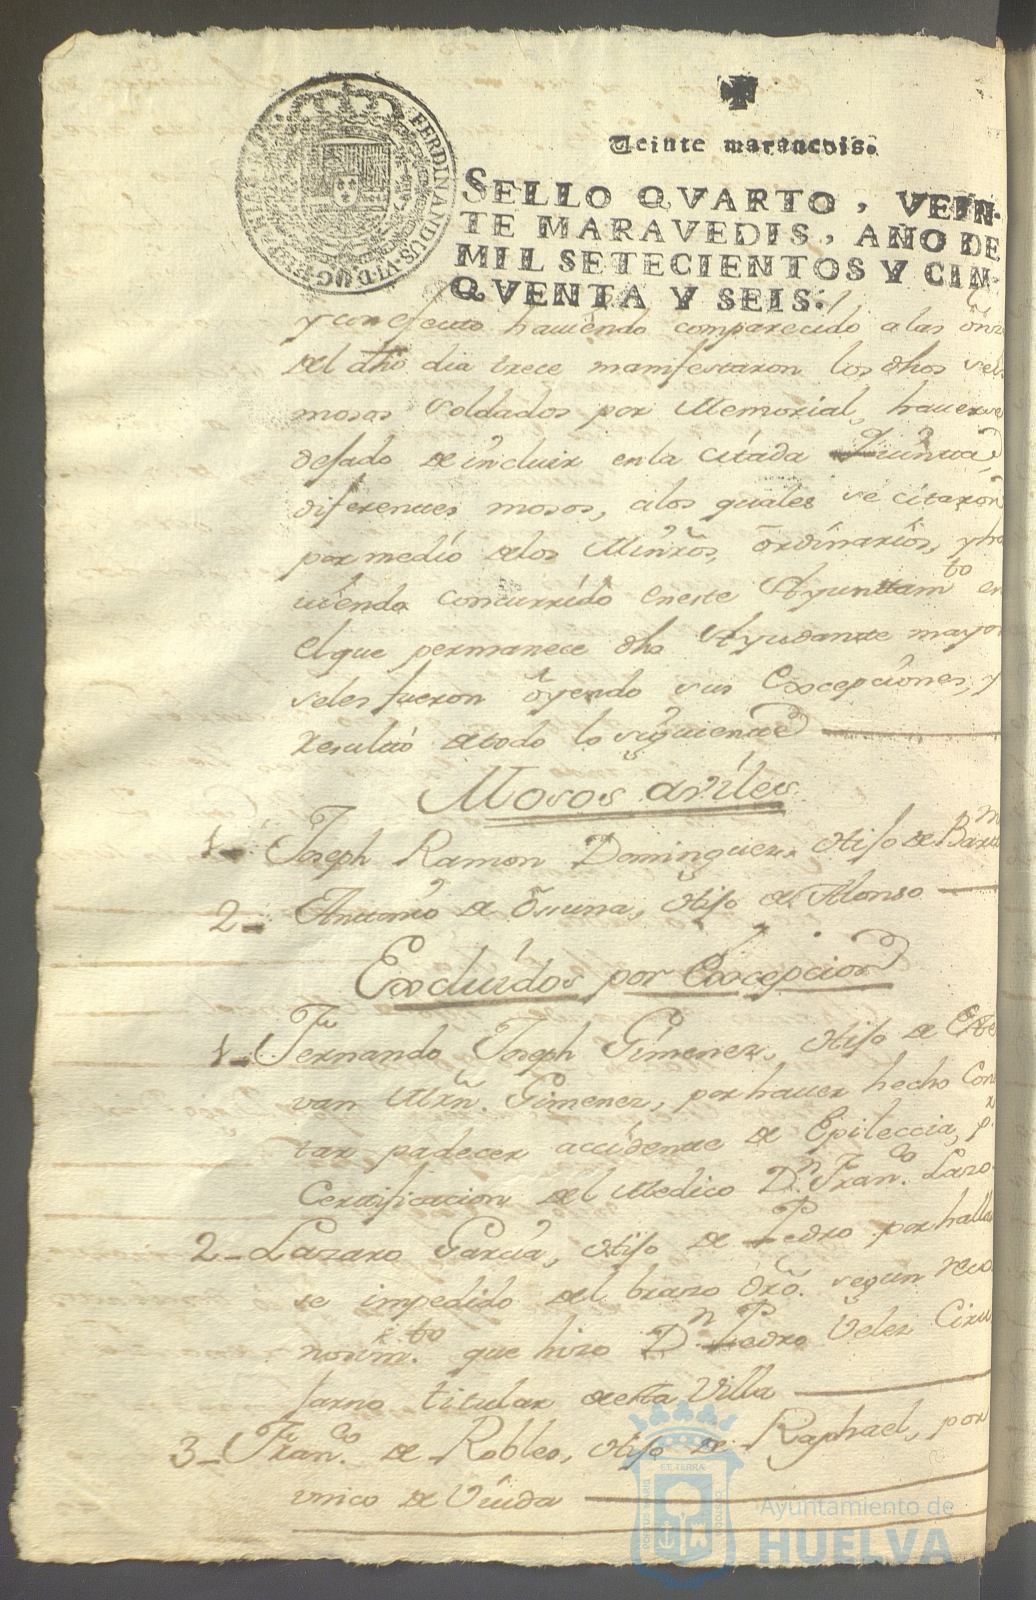 FERDINANDUS·VI·D·G·HISP
Veinte maravedis.
SELLO QVARTO, VEIN-
TE MARAVEDIS, AÑO DE
MIL SETECIENTOS Y CIN-
QVENTA Y SEIS.
y con efecto haviendo comparecido a las onze
del dho dia trece manifestaron los dhos
mosos Soldados por Memorial, haverse
dejado de incluir en la citada Quinta
diferentes mosos, a los quales se citaron
por medio de los Minros. ordinarios, y ha
viendo concurrido en este Ayuntamto en
el que permanece dho Ayudante mayor
se les fueron oyendo sus Excepciones, y
Resultó de todo lo siguiente
Mosos aviles
1- Joseph Ramon Dominguez, Hijo de Barme
2- Antonio de Ossuna, Hijo de Alonso
Excluidos por Excepcion
1- Fernando Joseph Gimenez, Hijo de Este
van Mrn. Gimenez, por haver hecho Cons
tar padecer accidente de Epileccia, pr.
Certificacion del Medico Dn. Franco. Lazo
2- Lazaro Garcia, Hijo de Pedro por hallar
se impedido del brazo dro. segun reco
nosimto. que hizo Dn. Pedro Velez Ciru
jano titular de esta Villa
3- Franco. de Robles, Hijo de Raphael, por
unico de Viuda
Ayuntamiento de
HUELVA